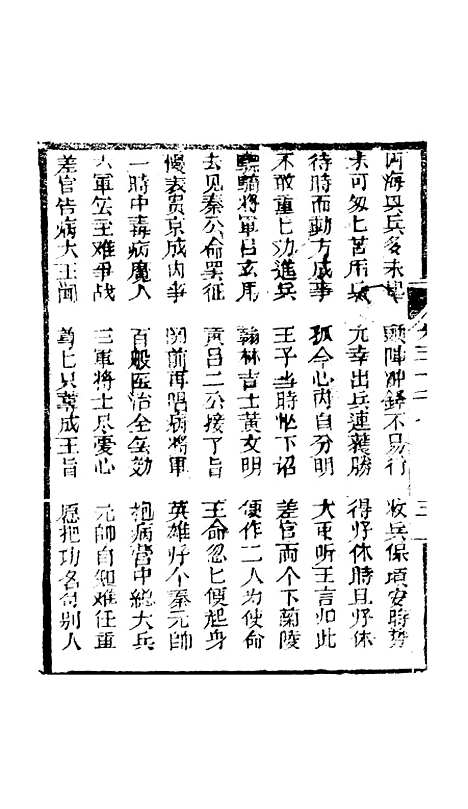 四海兵多未
冲鋒不易行
收兵保安時勢
未可匆匕苦用兵
幸出兵連獲勝
得好休時且好休
待時而動方成事
孤今心內自分明
大听王言如此
不敢重匕劝進兵
王子当時忙下诏
差官両个下蘭陵
騎將軍吕玄用
翰林吉士黄文明
便作二人为使命
去见秦公命罢征
黄吕二公接了旨
王命忽匕便起身
慢表贵京成内事
前再唱病將軍
英雄好个秦元帥
一時中毒病魔人
百般医治全無効
抱病营中總大兵
軍無主难争战
三軍將士尽憂心
元帥自知难任重
差官告病大王闻
尊匕只尊成王旨
愿把功名别人